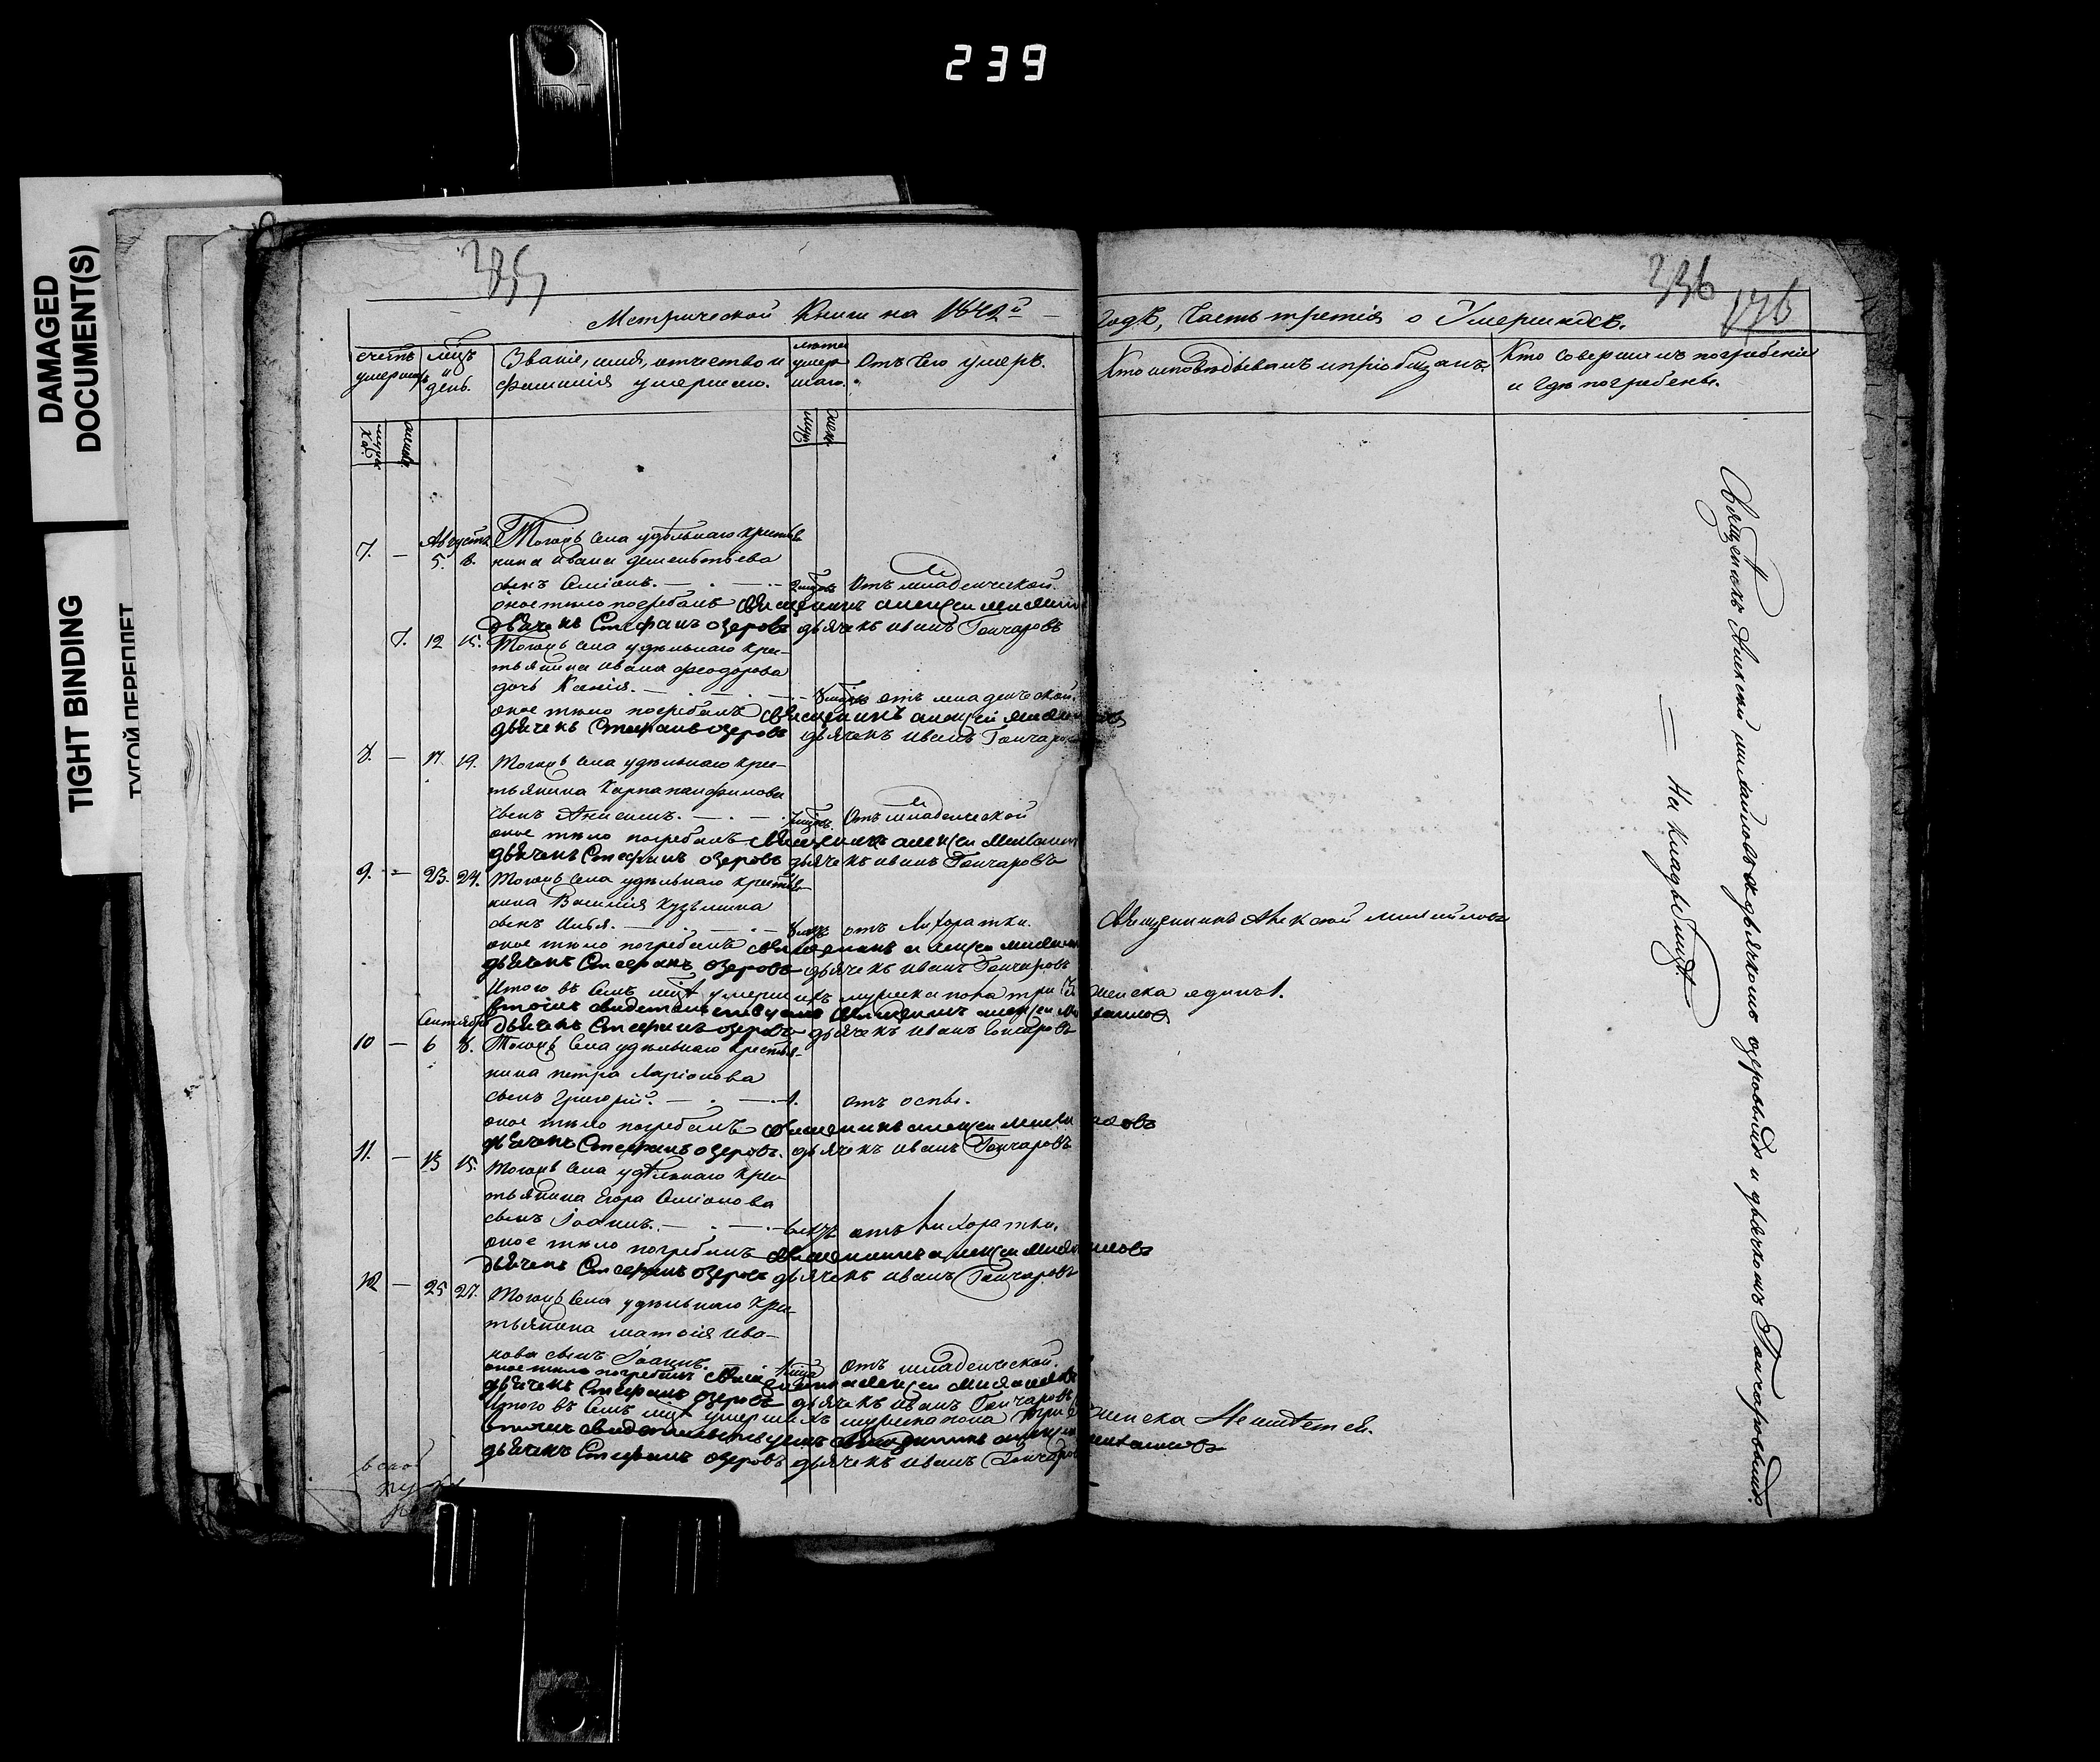 239
DAMAGED
DOCUMENT(S)
TIGHT BINDING
ТУГОЙ ПЕРЕПЛЕТ
385
336
176
Метрической Книги на 1842й
годъ, Часть третія о Умершихъ.
счетъ умершихъ
мцъ и день.
Званіе, имя, отчество и
фамилія умершаго.
лѣта
умер
шаго.
Отъ Чего умеръ.
Кто исповѣдывалъ и пріобщалъ.
Кто совершилъ погребеніе
и гдѣ погребены.
Августъ
7. — 5. 8. Тогожъ села удѣльнаго крестья
нина Ивана дементьева
сынъ Симіонъ. Отъ младенческой.
оное тѣло погребалъ священникъ алексей
дьячекъ Стефанъ озеровъ дьячекъ иванъ Гончаровъ
7. 12 15. Тогожъ села удѣльнаго крес-
тьянина ивана феодорова
дочь Ксенія. отъ младенческой.
оное тѣло погребалъ священникъ алексей
дьячекъ Стефанъ озеровъ дьячекъ иванъ Гончаровъ
8. — 17. 19. Тогожъ села удѣльнаго крес-
тьянина Карпа панфилова
сынъ Анисимъ. Отъ младенческой
оное тѣло погребалъ священникъ алексей
дьячекъ Стефанъ озеровъ дьячекъ иванъ Гончаровъ
9. — 23. 24. Тогожъ села удѣльнаго крестья
нина Василія кузьмина
сынъ Илья. отъ Лихоратки. Священникъ Алексей михайловъ
оное тѣло погребалъ священникъ алексей
дьячекъ Стефанъ озеровъ дьячекъ иванъ Гончаровъ
Итого въ семъ мцѣ умершихъ мужеска пола три 3. женска единъ 1.
втомъ свидетельствуемъ священникъ алексей михайловъ
дьячекъ Стефанъ озеровъ дьячекъ иванъ Гончаровъ
Сентябрь
10 — 6 8. Тогожъ Села удѣльнаго крестья-
нина петра Ларіонова
сынъ Григорій. 1. отъ оспы.
оное тѣло погребалъ священникъ алексей михайловъ
дьячекъ Стефанъ озеровъ. дьячекъ иванъ Гончаровъ
11. — 13 15. Тогожъ Села удѣльнаго крес-
тьянина Егора Симіонова
сынъ Іоаннъ. отъ Лихоратки.
оное тѣло погребалъ священникъ алексей михайловъ
дьячекъ Стефанъ озеровъ дьячекъ иванъ Гончаровъ
12 — 25 27. Тогожъ Села удѣльнаго Крес-
тьянина матфія ива-
нова сынъ Іоаннъ. отъ младенческой.
оное тѣло погребалъ священникъ алексей михайловъ
дьячекъ Стефанъ озеровъ дьячекъ иванъ Гончаровъ
Итого въ Семъ мцѣ умершихъ мужеска пола три 3 женска Неимѣется.
втомъ свидетельствуемъ священникъ алексей михайловъ
дьячекъ Стефанъ озеровъ дьячекъ иванъ Гончаровъ
Священникъ Алексей михайловъ съ дьячкомъ озеровымъ и дьячкомъ Гончаровымъ.
На кладьбищѣ